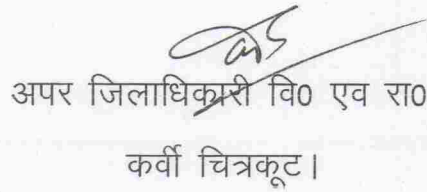 अपर जिलाधिकारी वि0 एव रा0
कर्वी चित्रकूट।